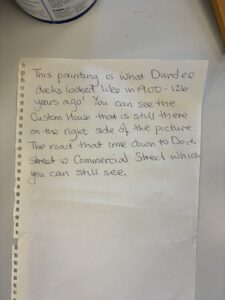 This painting is what Dundee
docks looked like in 1900 - 126
years ago! You can see the
Custom House that is still there
on the right side of the picture
The road that come down to Dock
Street is Commercial Street which
you can still see.